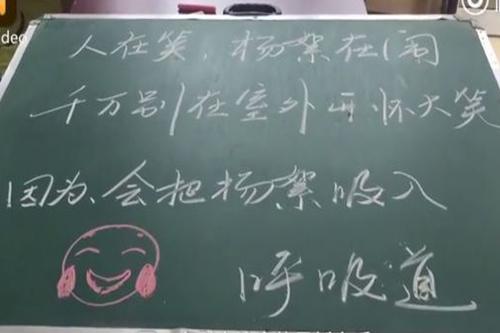 人在笑，杨絮在闹
千万别在室外开怀大笑
因为、会把杨絮吸入
呼吸道